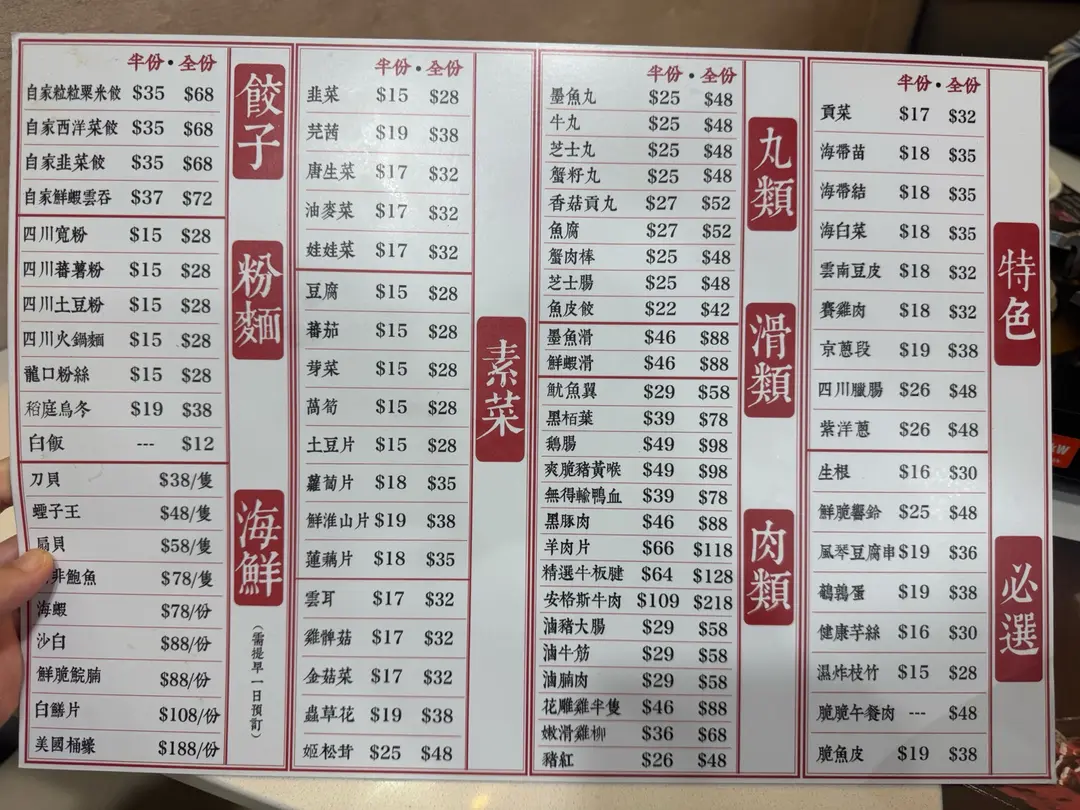 餃子
半份・全份
自家粒粒粟米餃 $35 $68
自家西洋菜餃 $35 $68
自家韭菜餃 $35 $68
自家鮮蝦雲吞 $37 $72
粉麵
四川寬粉 $15 $28
四川蕃薯粉 $15 $28
四川土豆粉 $15 $28
四川火鍋麵 $15 $28
龍口粉絲 $15 $28
稻庭烏冬 $19 $38
白飯 --- $12
海鮮
(需提早一日預訂)
刀貝 $38/隻
蟶子王 $48/隻
扇貝 $58/隻
非鮑魚 $78/隻
海蝦 $78/份
沙白 $88/份
鮮脆鯇腩 $88/份
白鱔片 $108/份
美國桶蠔 $188/份
素菜
半份・全份
韭菜 $15 $28
芫茜 $19 $38
唐生菜 $17 $32
油麥菜 $17 $32
娃娃菜 $17 $32
豆腐 $15 $28
蕃茄 $15 $28
芽菜 $15 $28
萵筍 $15 $28
土豆片 $15 $28
蘿蔔片 $18 $35
鮮淮山片 $19 $38
蓮藕片 $18 $35
雲耳 $17 $32
雞髀菇 $17 $32
金菇菜 $17 $32
蟲草花 $19 $38
姬松茸 $25 $48
丸類
半份・全份
墨魚丸 $25 $48
牛丸 $25 $48
芝士丸 $25 $48
蟹籽丸 $25 $48
香菇貢丸 $27 $52
魚腐 $27 $52
蟹肉棒 $25 $48
芝士腸 $25 $48
魚皮餃 $22 $42
滑類
墨魚滑 $46 $88
鮮蝦滑 $46 $88
肉類
魷魚翼 $29 $58
黑栢葉 $39 $78
鵝腸 $49 $98
爽脆豬黃喉 $49 $98
無得輸鴨血 $39 $78
黑豚肉 $46 $88
羊肉片 $66 $118
精選牛板腱 $64 $128
安格斯牛肉 $109 $218
滷豬大腸 $29 $58
滷牛筋 $29 $58
滷腩肉 $29 $58
花雕雞半隻 $46 $88
嫩滑雞柳 $36 $68
豬紅 $26 $48
特色
半份・全份
貢菜 $17 $32
海帶苗 $18 $35
海帶結 $18 $35
海白菜 $18 $35
雲南豆皮 $18 $32
賽雞肉 $18 $32
京蔥段 $19 $38
四川臘腸 $26 $48
紫洋蔥 $26 $48
必選
生根 $16 $30
鮮脆響鈴 $25 $48
風琴豆腐串 $19 $36
鵪鶉蛋 $19 $38
健康芋絲 $16 $30
濕炸枝竹 $15 $28
脆脆午餐肉 --- $48
脆魚皮 $19 $38